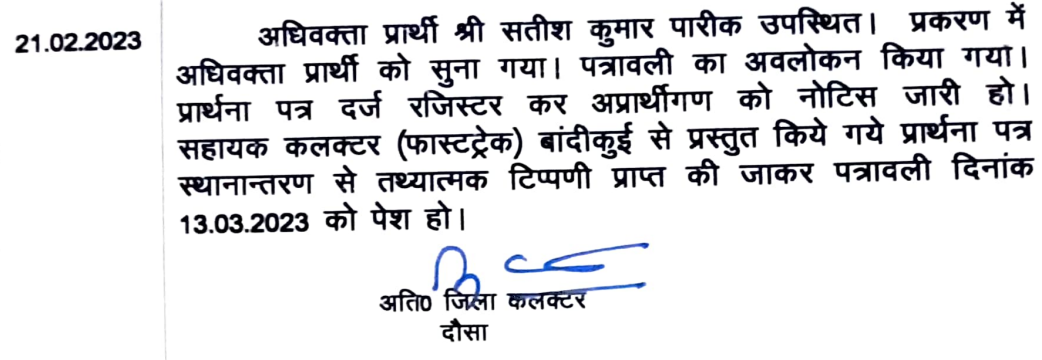 21.02.2023 अधिवक्ता प्रार्थी श्री सतीश कुमार पारीक उपस्थित। प्रकरण में
अधिवक्ता प्रार्थी को सुना गया। पत्रावली का अवलोकन किया गया।
प्रार्थना पत्र दर्ज रजिस्टर कर अप्रार्थीगण को नोटिस जारी हो।
सहायक कलक्टर (फास्टट्रेक) बांदीकुई से प्रस्तुत किये गये प्रार्थना पत्र
स्थानान्तरण से तथ्यात्मक टिप्पणी प्राप्त की जाकर पत्रावली दिनांक
13.03.2023 को पेश हो।
अति0 जिला कलक्टर
दौसा